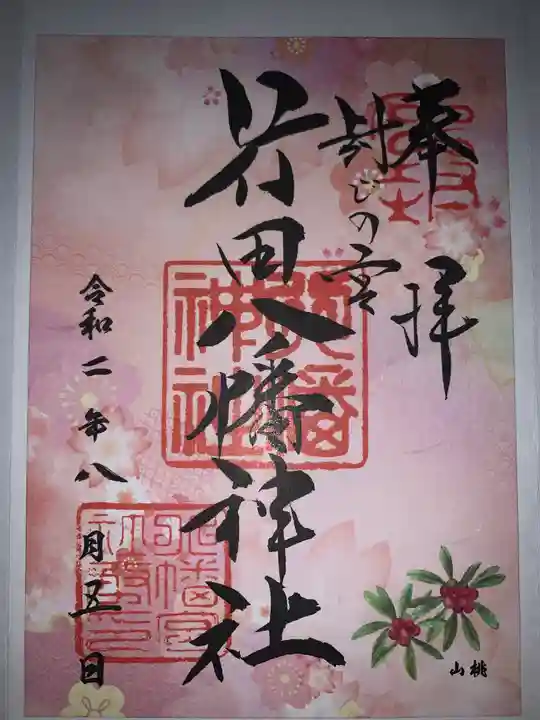 奉拝
封じの宮
行田八幡神社
八幡神社
令和二年八月五日
山桃